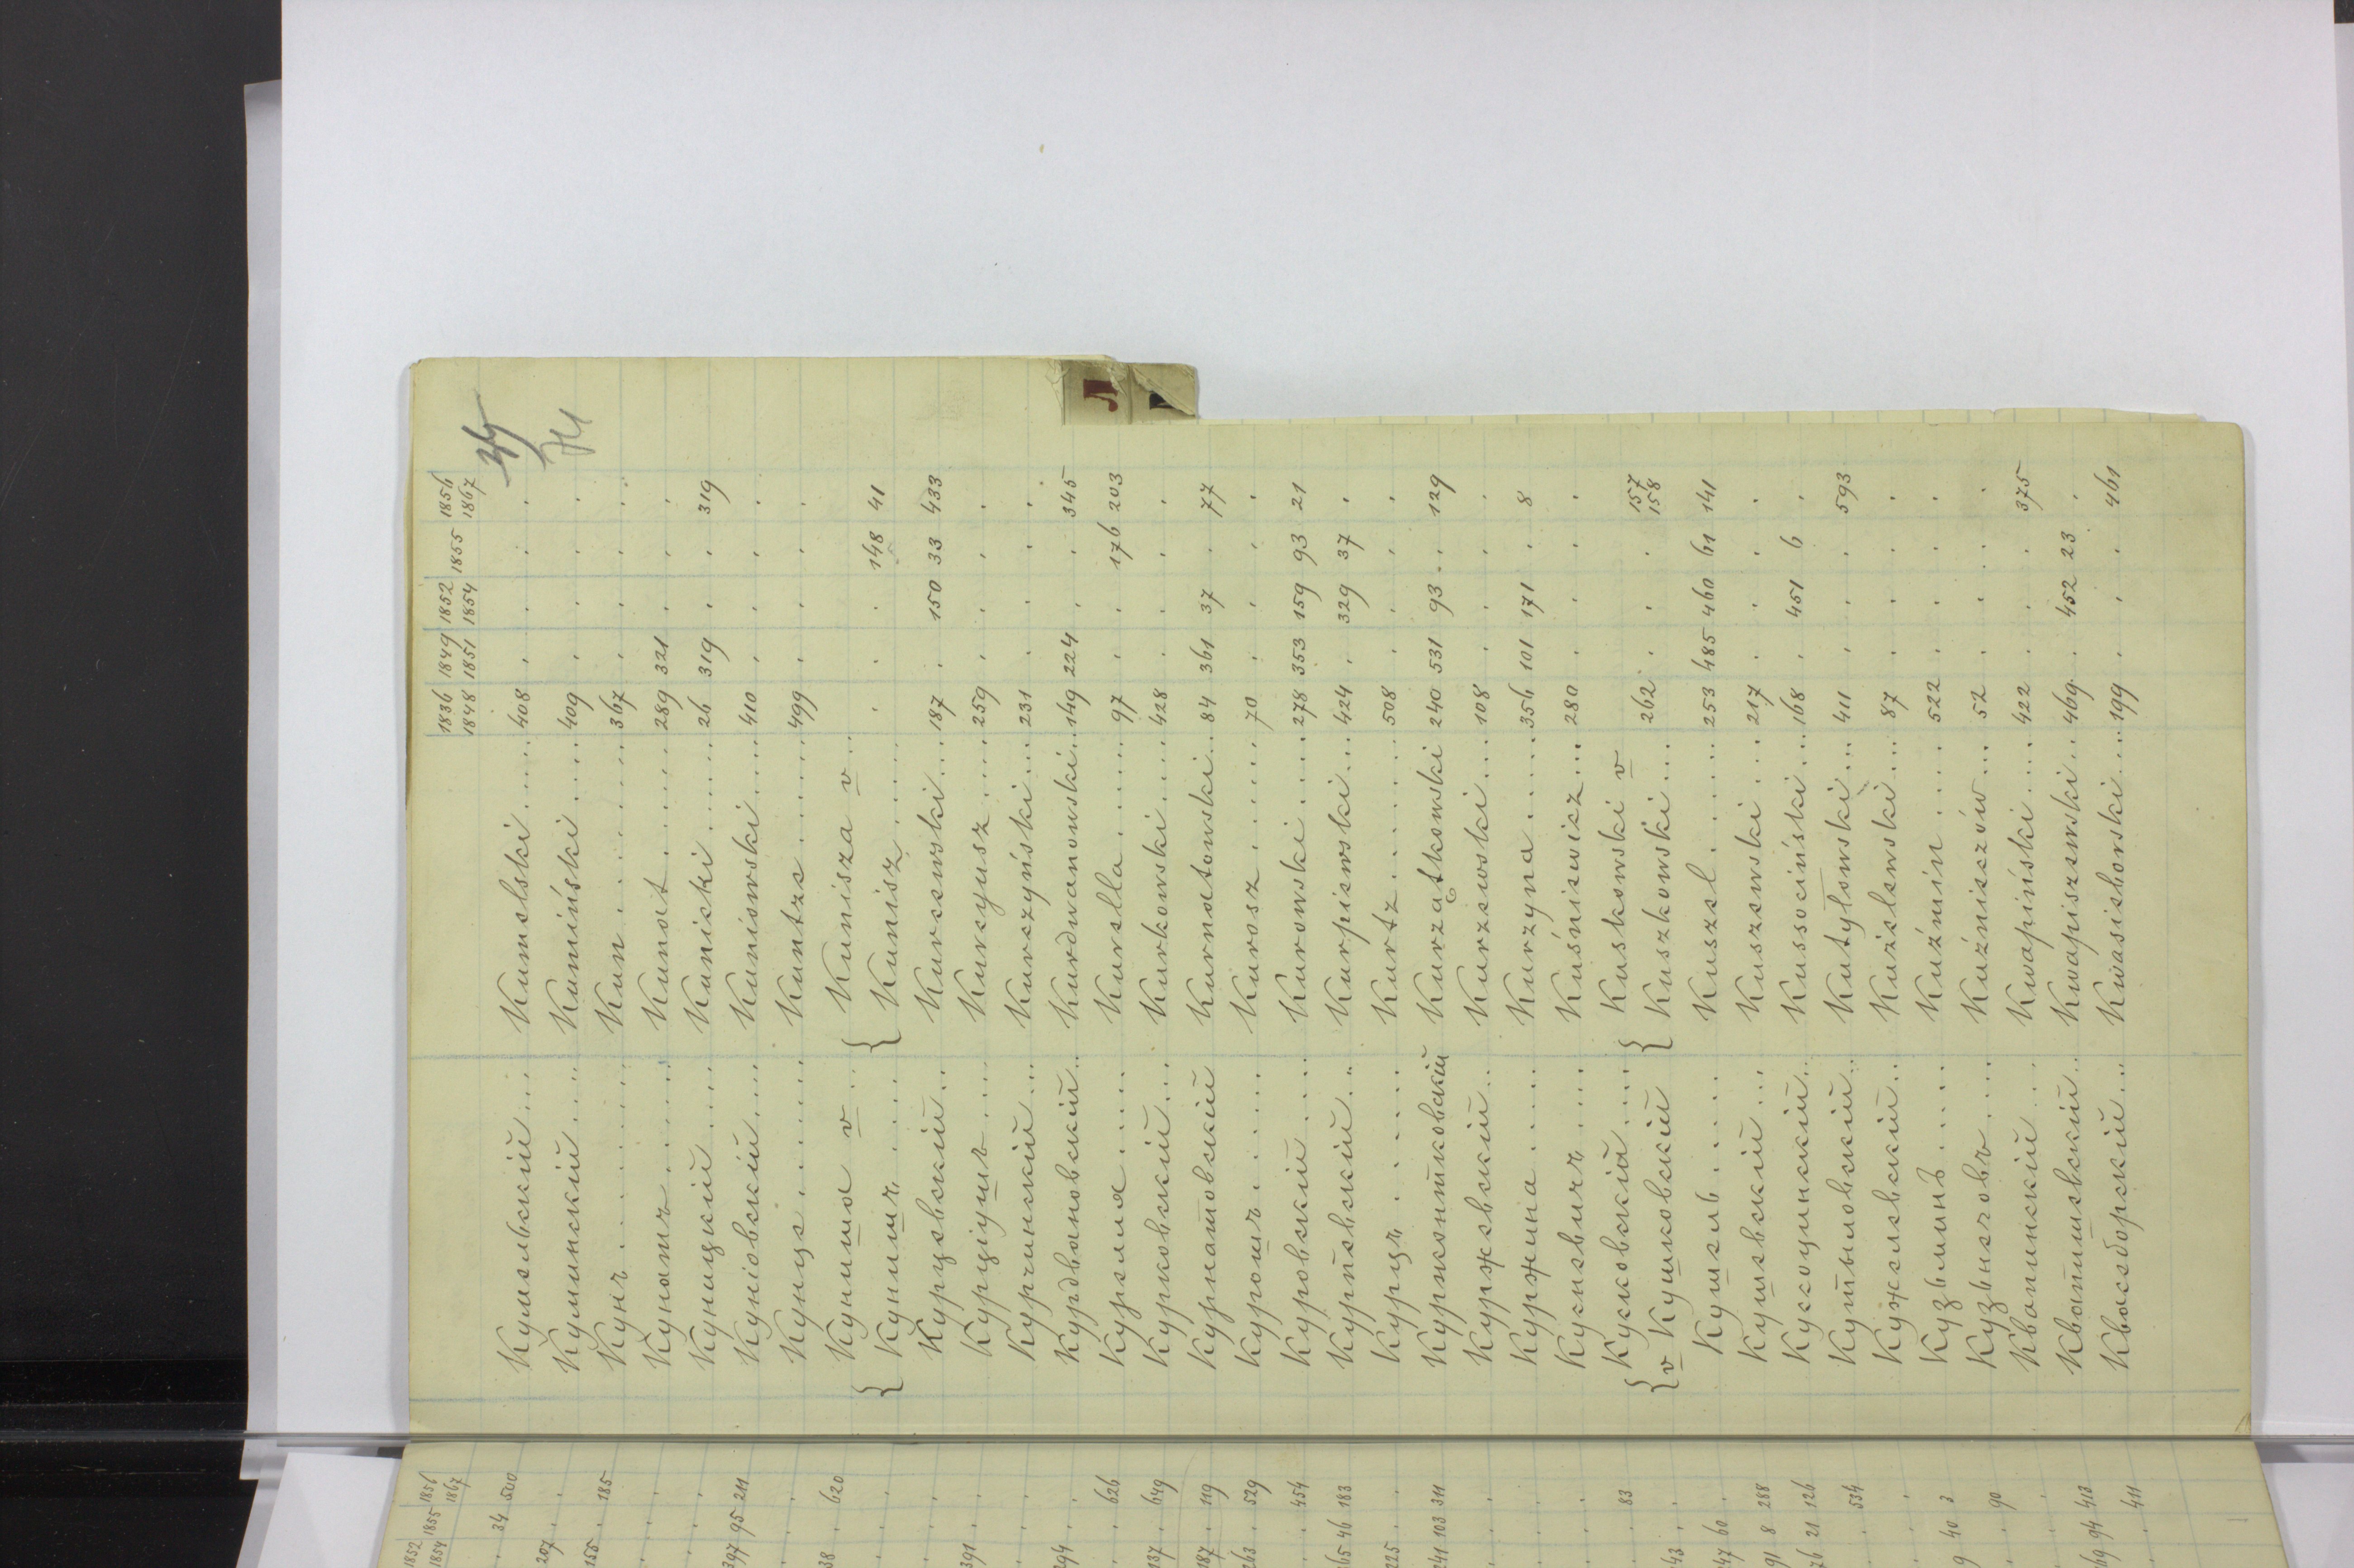 1836 1848 | 1849 1851 | 1852 1854 | 1855 | 1856 1867
Кумельскій .... Kumelski .... 408 . . . .
Куминскій .... Kumiński .... 409 . . . .
Кунъ ........ Kun ........ 367 . . . .
Кунатъ ...... Kunat ...... 289 321 . . .
Куницкій .... Kunicki ..... 26 319 . . 319
Куніовскій .... Kuniowski .... 410 . . . .
Кунце ...... Kuntze ..... 499 . . . .
{ Куниша v ... { Kunisza v ..
Кунишъ .... Kunisz ..... . . . 148 41
Курцевскій .. Kurcewski ... 187 . 150 33 433
Курціушъ .... Kurcyusz .... 259 . . . .
Курчинскій ... Kurczyński ... 231 . . . .
Курдвановскій .. Kurdwanowski .. 149 224 . . 345
Курелла ..... Kurella ...... 97 . . 176 203
Курковскій ... Kurkowski .... 428 . . . .
Курнатовскій Kurnatowski .. 84 361 37 . 77
Курошъ ...... Kurosz ...... 70 . . . .
Куровскій .... Kurowski .... 278 353 159 93 21
Курпевскій .. Kurpiewski ... 424 . 329 37 .
Курцъ ....... Kurtz ....... 508 . . . .
Куржонтковскій Kurzątkowski 240 531 93 . 129
Куржевскій .. Kurzewski ... 108 . . . .
Куржина ..... Kurzyna ..... 356 101 171 . 8
Кусневичъ .... Kuśniewicz ... 280 . . . .
{ Кусковскій .... { Kuskowski v
v Кушковскій Kuszkowski ... 262 . . . 157 158
Кушель ..... Kuszel ...... 253 485 460 61 141
Кушевскій ... Kuszewski ... 217 . . . .
Куссоцинскій .. Kussociński ... 168 . 451 6 .
Кутыловскій .. Kutyłowski ... 411 . . . 593
Кужелевскій .. Kużelewski ... 87 . . . .
Кузьминъ .... Kuźmin ..... 522 . . . .
Кузьнечовъ .... Kuźnieczów ... 52 . . . .
Квапинскій ... Kwapiński .... 422 . . . 375
Квапишевскій .. Kwapiszewski .. 469 . 452 23 .
Квасеборскій ... Kwasieborski ... 199 . . . 461
Л
1852 1854 | 1855 | 1856 1867
. 34 500
207 . .
155 . 185
397 95 211
38 . 620
391 . .
394 . .
. . 626
137 . 649
187 . 119
263 . 529
. . 454
165 46 183
225 . .
241 103 311
. . 83
143 . .
147 60 .
91 8 288
76 21 126
. . 534
9 40 3
. . 90
169 94 413
. . 411